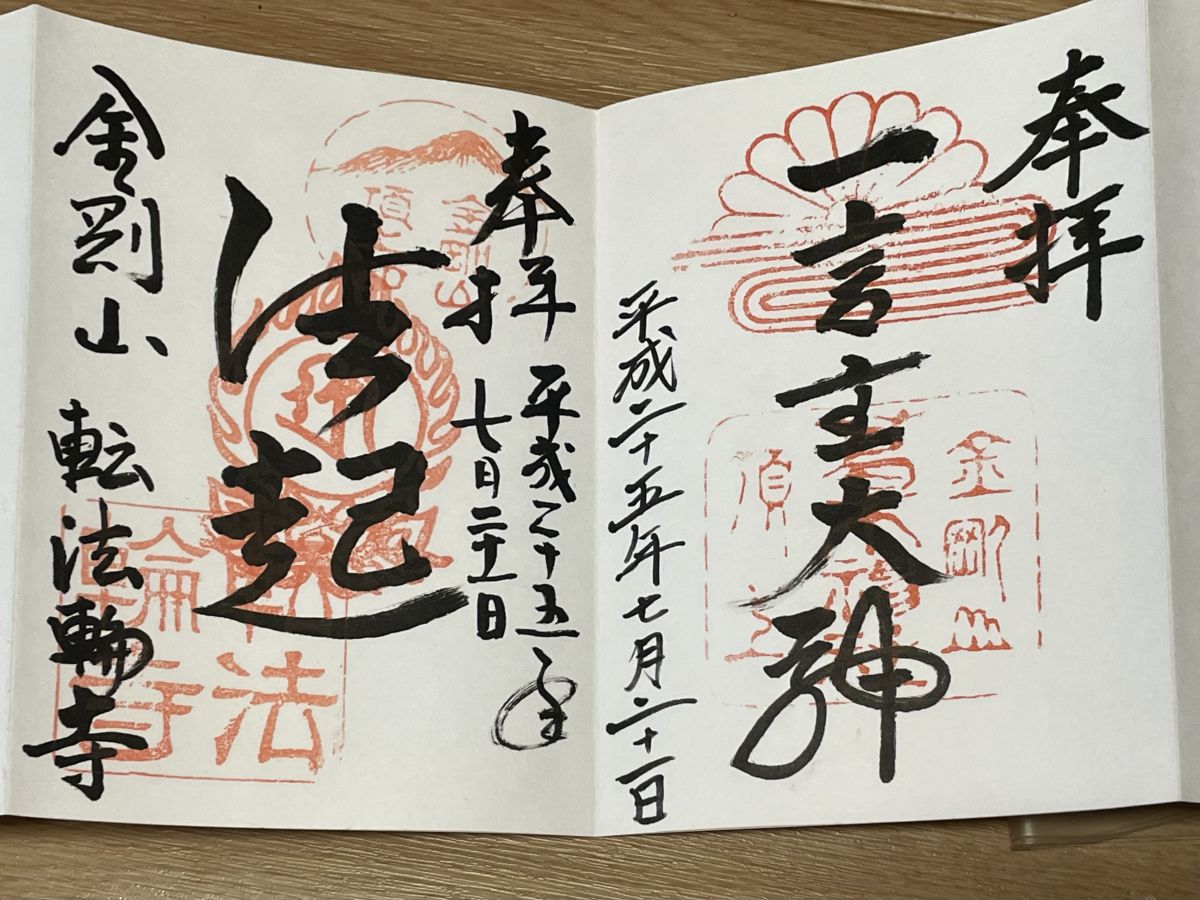 奉拝
一言主大神
平成二十五年七月二十一日
金剛山
頂上
奉拝 平成二十五年
七月二十一日
法起
金剛山 転法輪寺
金剛山
頂
法
輪寺